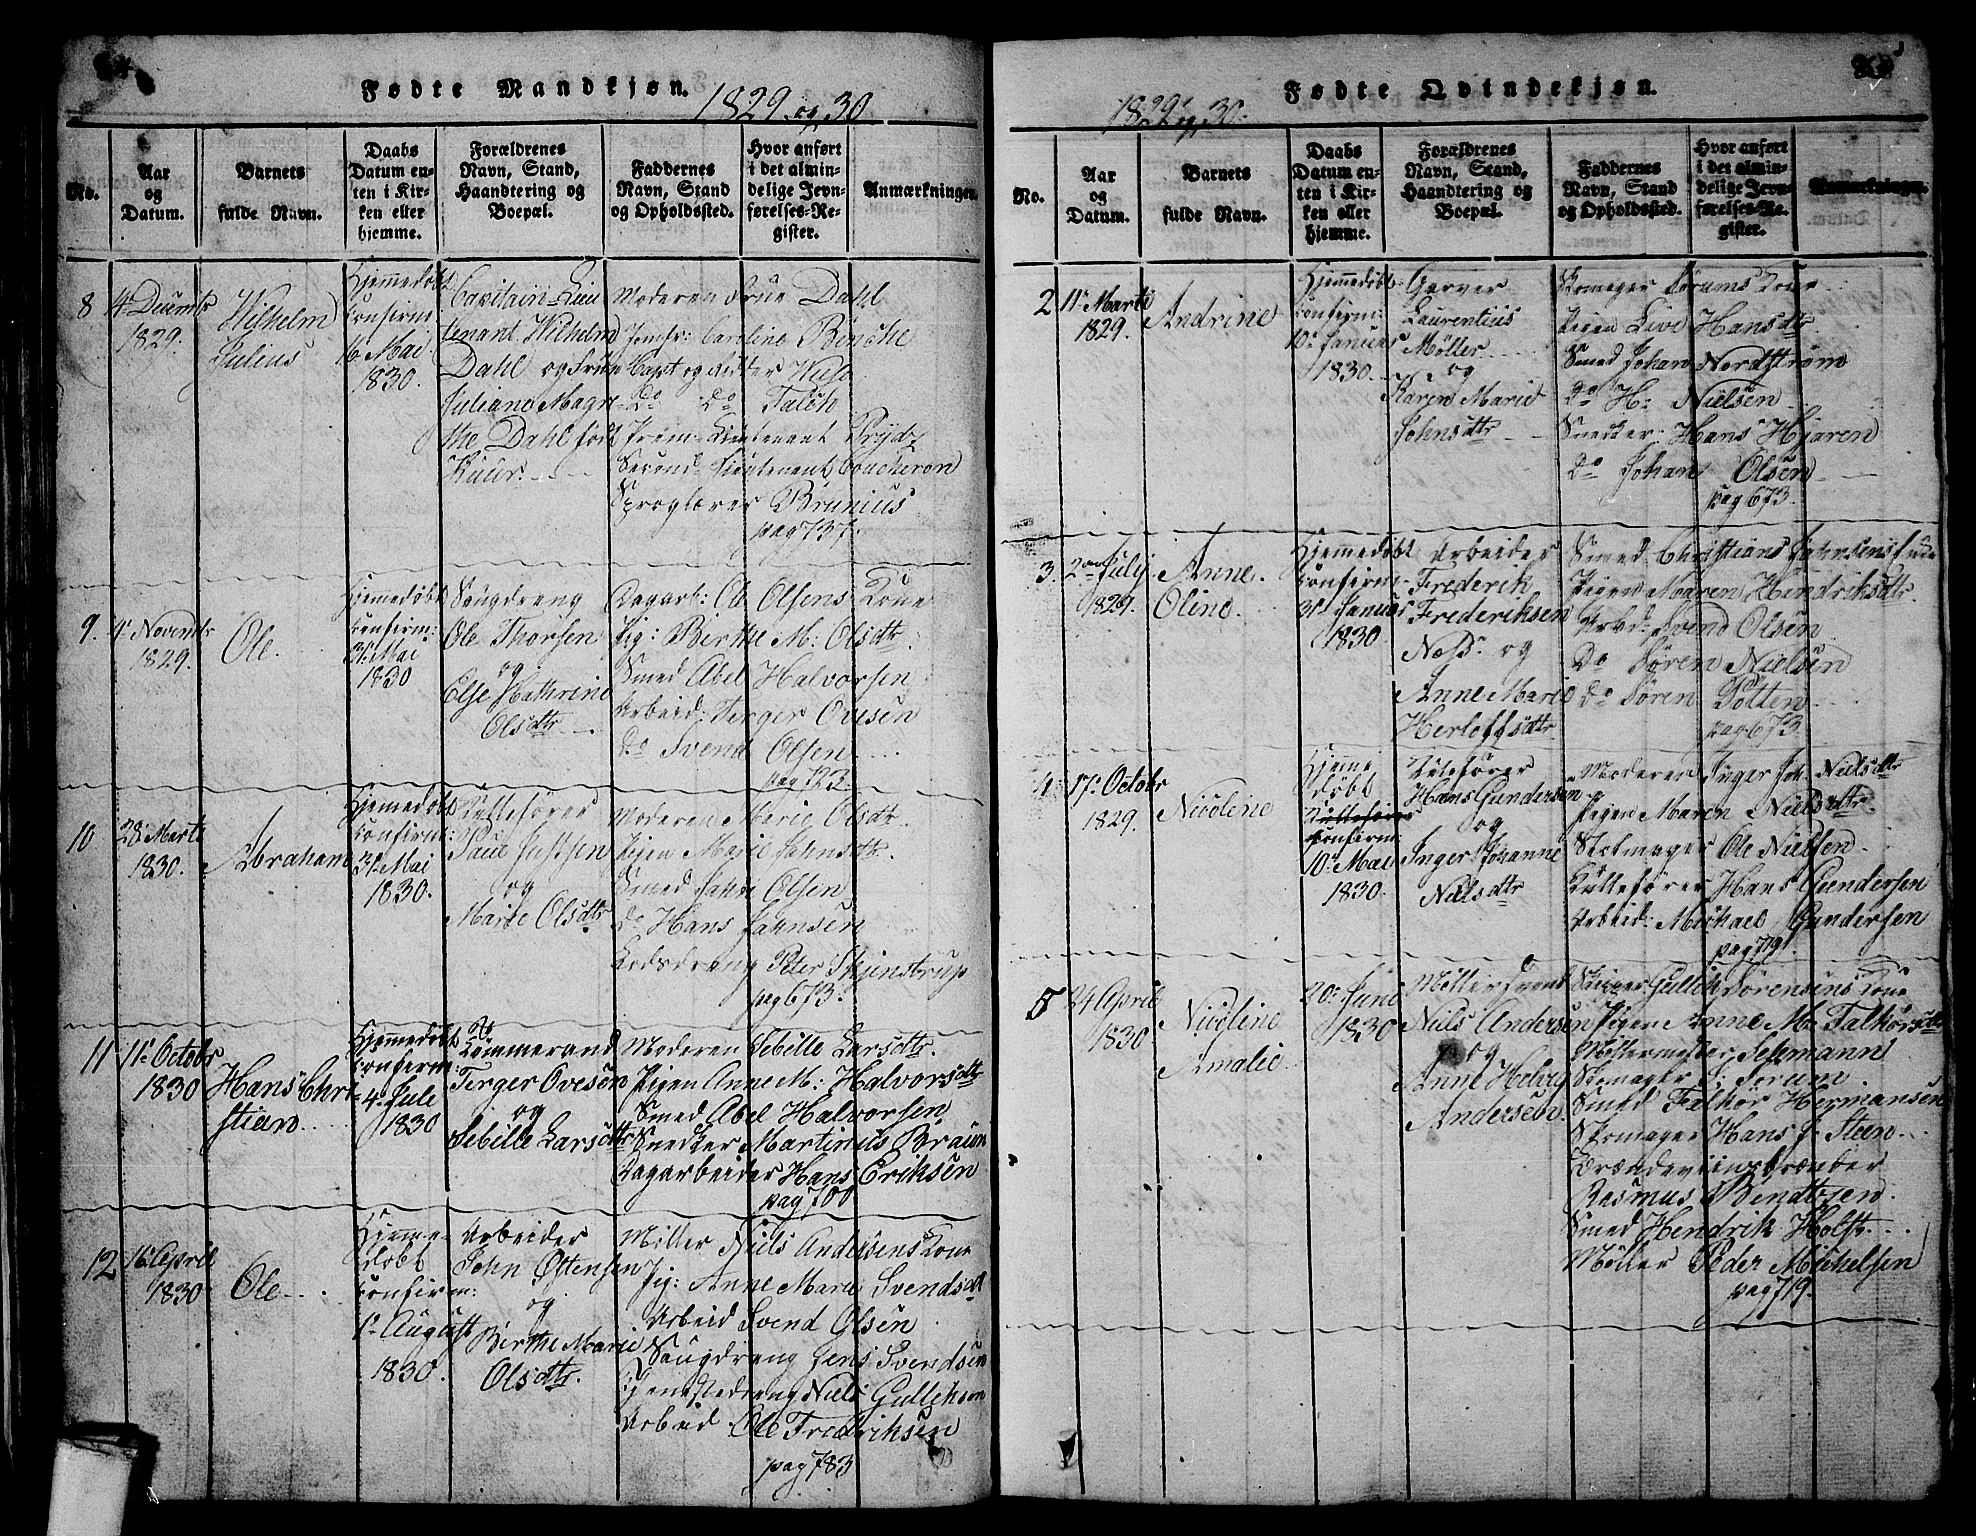 Fødte Mandkjøn.
1829 og 30
No.
Aar
og
Datum.
Barnets
fulde Navn.
Daabs
Datum en-
ten i Kir-
ken eller
hjemme.
Forældrenes
Navn, Stand,
Haandtering og
Boepæl.
Faddernes
Navn, Stand
og Opholdssted.
Hvor anført
i det almin-
delige Jevn-
førelses-Re-
gister.
Anmærkninger.
8
4 Decembr
1829.
Wilhelm
Julius
Hjemedøbt
Confirm:
16 Mai
1830.
Capitain-Lieu
tenant Wilhelm
Dahl og Frue
Juliane Magre
the Dahl født
Moderen Frue Dahl
Jomfr: Caroline
Capt og Ridter
do do Falch
Prem: Lieutenant Prydz
Second: Lieutenant Coucheron
Sproglærer Brunius
pag 737.
9.
4 Novembr
1829.
Ole.
Hjemedøbt
Confirm:
31 Mai
1830
Saugdreng
Ole Thorsen
og
Else Kathrine
Olsdtr
Dagarb: Ole Olsens Kone
Pig: Birthe M: Olsdtr
Smed Abel Halvorsen
Arbeid: Terger Ovesen
do Svend Olsen
pag 723
10
28 Marts
1830.
Abraham
Hjemedøbt
Confirm:
31 Mai
1830.
Paul Justsen
og
Marie Olsdtr
Moderen Marie Olsdtr.
Pigen Marie Jahnsdtr.
Smed Jahn Olsen
do Hans Jahnsen
Peter Skjenstrup
pag 673.
11
11 Octobr
1830
Hans Chri-
stian
Hjemmedøbt
Confirm:
4 Jule
1830
Terger Ovesen
og
Sebille Larsdtr
Moderen Sebille Larsdtr.
Pigen Anne M: Halvorsdtr
Smed Abel Halvorsen
Snedker Martinus Braun
Dagarbeider Hans Eriksen
pag 700
12
16 April
1830
Ole
Hjeme
døbt
Confirm:
1 August
1830.
Arbeider
John Østensen
og
Birthe Marie
Olsdtr.
Møller Niels Andersens Kone
Pig: Anne Marie Svendsdt
Arbeid Svend Olsen
Saugdreng Jens Svendsen
Niels Gullichsen
Arbeid. Ole Fredriksen
pag 783
Fødte Qvindekjøn.
1829 og 30.
No.
Aar
og
Datum.
Barnets
fulde Navn.
Daabs
Datum en-
ten i Kir-
ken eller
hjemme.
Forældrenes
Navn, Stand,
Haandtering og
Boepæl.
Faddernes
Navn, Stand
og Opholdssted.
Hvor anført
i det almin-
delige Jevn-
førelses-Re-
gister.
Anmærkninger.
2
11 Marti
1829.
Andrine
Hjemmedøbt
Confirm:
10 Januar
1830.
Garver
Laurentius
Møller
og
Karen Marie
Johnsdtr
Skomager Sørums Kone
Pigen Live Hansdtr
Smed Johan Nordstrøm
do H: Nielsen
Snedker: Hans Hjaren
do Johan Olsen
pag 673.
3.
2 July
1829.
Anne
Oline.
Hjemmedøbt
Confirm:
31 Januar
1830
Arbeider
Frederik
Frederiksen
Næss og
Anne Marie
Herloffsdtr
Smed Christians Jahnsens
Pigen Maren Hendriksdtr.
Arbd: Svend Olsen
do Søren Nielsen
do Søren Potten
pag 673.
4.
17 Octobr
1829.
Nicoline
Hjeme
døbt
Confirm:
10 Mai
1830.
Hans Gundersen
og
Inger Johanne
Nielsdtr
Moderen Inger Joh. Nielsdtr
Pigen Maren Nielsdtr.
Ole Nielsen
Hans Gundersen
Arbeid: Michael Gundersen
pag 719.
5
24 April
1830
Nicoline
Amalie
20 Juni
1830
Møllersvend
Niels Andersen
og
Anne Helvig
Andersen
Skipper Gullich Sørensens Kone
Pigen Anne M: Falkorsdtr
Møllermester Sehmann
Skomager S: Sørum
Smed Falkor Hermansen
Skomager Hans J. Steen
Brændeviinsbrænder
Rasmus Bendtzen.
Smed Hendrik Holst
Møller Peder Michelsen
pag 719.